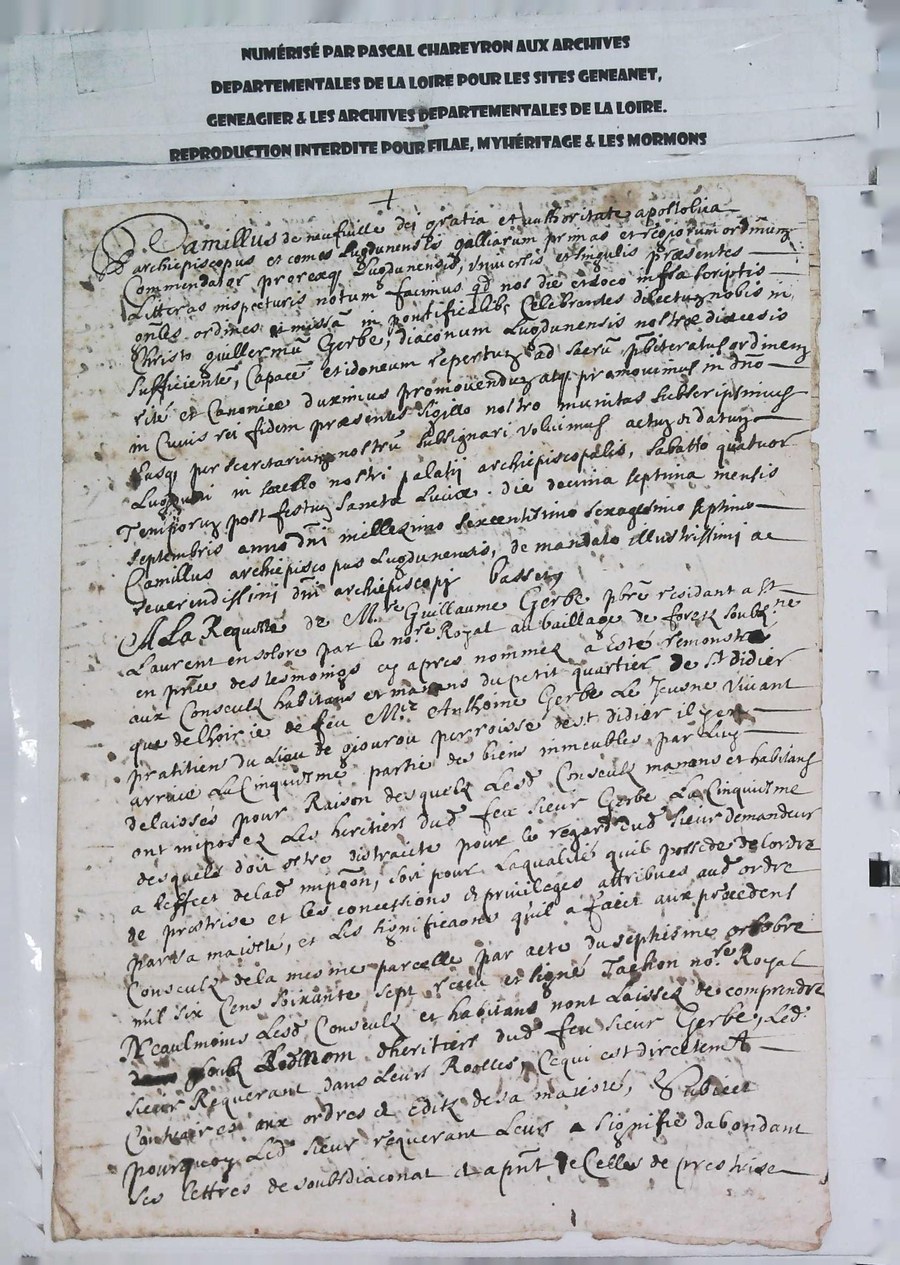 NUMÉRISÉ PAR PASCAL CHAREYRON AUX ARCHIVES
DEPARTEMENTALES DE LA LOIRE POUR LES SITES GENEANET,
GENEAGIER & LES ARCHIVES DEPARTEMENTALES DE LA LOIRE.
REPRODUCTION INTERDITE POUR FILAE, MYHÉRITAGE & LES MORMONS
Camillus de neufuille dei gratia et authoritate apostolica
archiepiscopus et comes Lugdunensis galliarum primas et regiorum ordinum
Commendator prorexq Lugdunensis, vniversis et singulis præsentes
Litteras inspecturis notum facimus qd nos die et loco infra scriptis
ordines missã in pontificalib Celebrantes dilectum nobis in
Christo guillermũ Gerbe, diaconum Lugdunensis nostræ diœcesis
sufficientẽ, Capacẽ et idoneum repertum ad sacrũ pbiteratus ordinem
ritè et Canonicè duximus promovendum atq promovimus in dño
in Cuius rei fidem præsentes sigillo nostro munitas subscripsimus
Easq per secretarium nostrũ subsignari voluimus actum et datum
Lugduni in sacello nostri palatij archiepiscopalis, sabatto quatuor
Temporum post festum sanctæ Luciæ die decima septima mensis
septembris anno dñi millesimo sexcentesimo sexagesimo septimo
Camillus archiepiscopus Lugdunensis, de mandato illustrissimi ac
reverendissimi dñi archiepiscopi Basset
A La Requeste de Mre Guillaume Gerbe pbre residant a St
Laurent en solore par le nore Royal au bailliage de forez soubzne
en pnce des tesmoings cy apres nommez a esté remonstré
aux Consculz habitans et manans du petit quartier de St didier
que de lhoirie de feu Mre Anthoine Gerbe Le Jeusne vivant
pratitien du Lieu de giourou parroisse de St didier il
arrive La Cinquiesme partie des biens inmeubles par Luy
delaisses pour Raison desquelz Lesd Consculz manans et habitans
ont imposez Les heritiers dud feu sieur Gerbe La Cinquiesme
desquels doit estre distraicte pour le regard dud sieur demandeur
a leffect de lad impõon, soit pour La qualité quil possede de lordre
de prestrise et les concessions & privileges attribues aud ordre
par sa maiesté, et les significaons quil a faict aux precedent
Consculz de la mesme parcelle par acte du septiesme octobre
mil six Cens soixante sept receu et signé Tachon nore Royal
Neaulmoins Lesd Consculz et habitans nont Laissez de comprendre
soubz Led Nom dheritiers dud feu sieur Gerbe, Led
sieur Requerant dans Leurs Roolles, Ce qui est directemt
Contraires aux ordres & edits de sa maiesté, Subiect
pourquoy Led sieur requerant Leurs a signifié dabondant
ses lettres de soubsdiaconat & apnt de Celles de prestrise